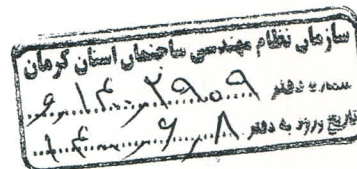 سازمان نظام مهندسی ساختمان استان کرمان
شماره دفتر ۲۹۰۹
تاریخ ورود به دفتر ۸ ٫ ۶